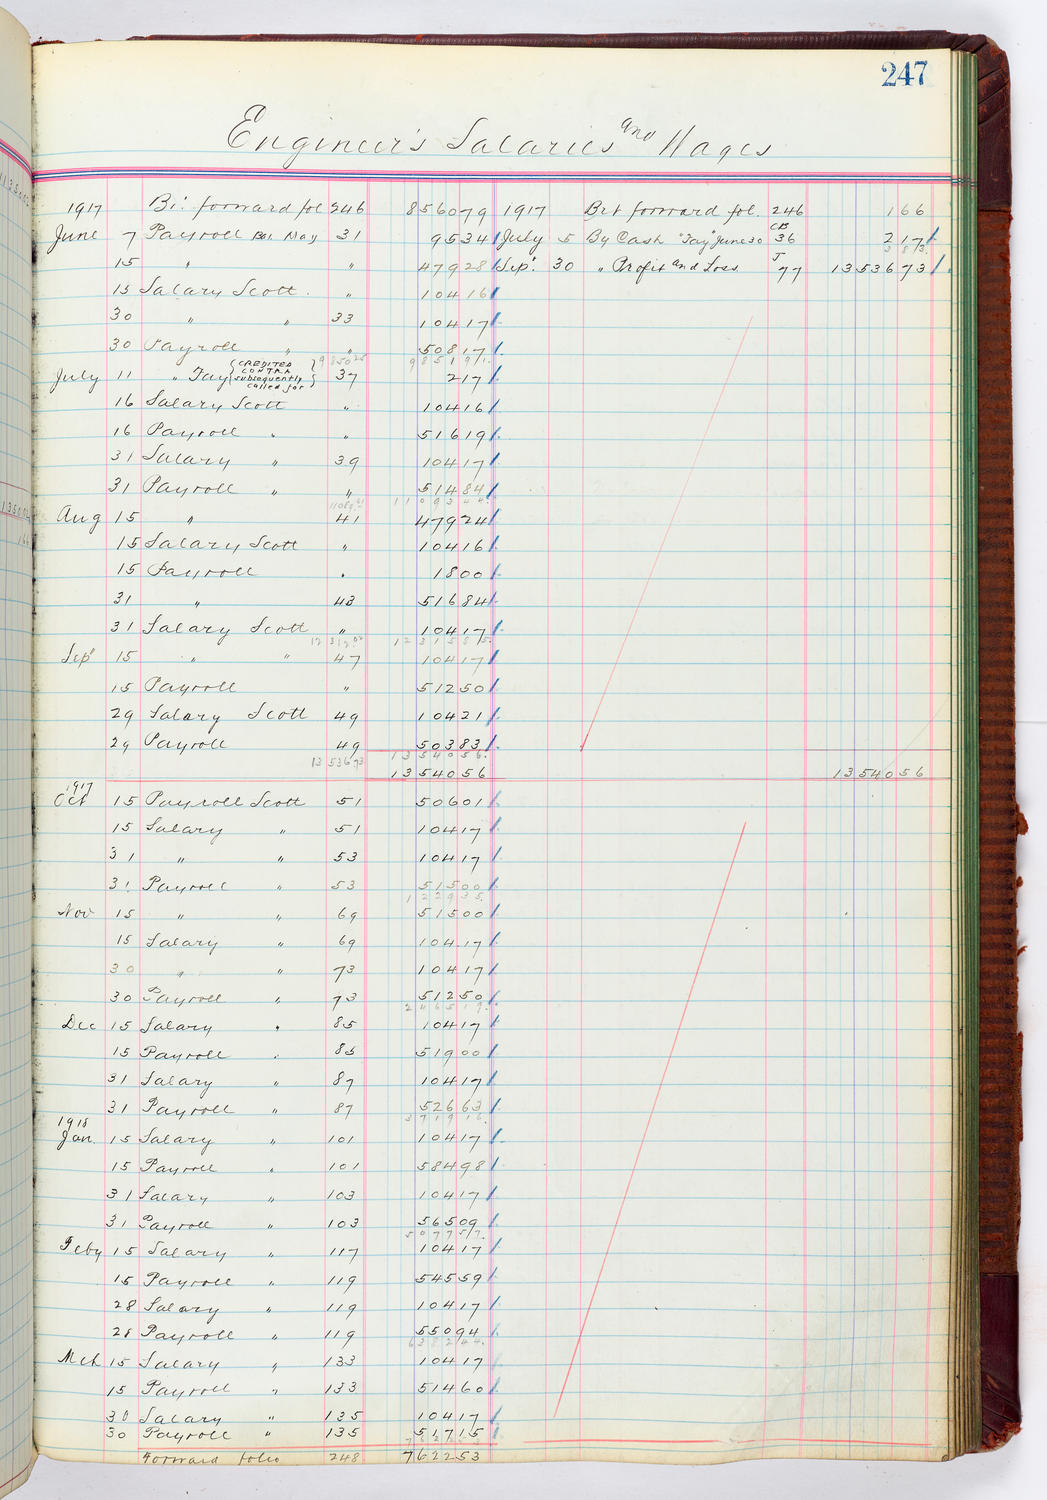 247
Engineer's Salaries and Wages
1917 Brt forward fol 246 856079 1917 Brt forward fol. 246 166
June 7 Payroll Bal. May 31 9534 July 5 By Cash "Fay" June 30 CB 36 217
15 " " 47928 Sep. 30 " Profit and Loss J 77 1353673
15 Salary Scott " 10416
30 " " 33 10417
30 Payroll " " 50817
9850.25 985191
July 11 " Fay (CREDITED CONTRA subsequently called for) 37 217
16 Salary Scott " 10416
16 Payroll " " 51619
31 Salary " 39 10417
31 Payroll " " 51484
1109344
Aug 15 " 41 47924
15 Salary Scott " 10416
15 Payroll " 1800
31 " 43 51684
31 Salary Scott " 10417
1231585
Sep 15 " " 47 10417
15 Payroll " 51250
29 Salary Scott 49 10421
29 Payroll 49 50383
13 536 73 1354056
1354056 1354056
1917
Oct 15 Payroll Scott 51 50601
15 Salary " 51 10417
31 " " 53 10417
31 Payroll " 53 51500
122935
Nov 15 " " 69 51500
15 Salary " 69 10417
30 " " 73 10417
30 Payroll " 73 51250
246519
Dec 15 Salary " 85 10417
15 Payroll " 85 51900
31 Salary " 87 10417
31 Payroll " 87 52663
371916
1918
Jan. 15 Salary " 101 10417
15 Payroll " 101 58498
31 Salary " 103 10417
31 Payroll " 103 56509
507757
Feby 15 Salary " 117 10417
15 Payroll " 119 54559
28 Salary " 119 10417
28 Payroll " 119 55094
638244
Mch 15 Salary " 133 10417
15 Payroll " 133 51460
30 Salary " 135 10417
30 Payroll " 135 51715
Forward folio 248 762253